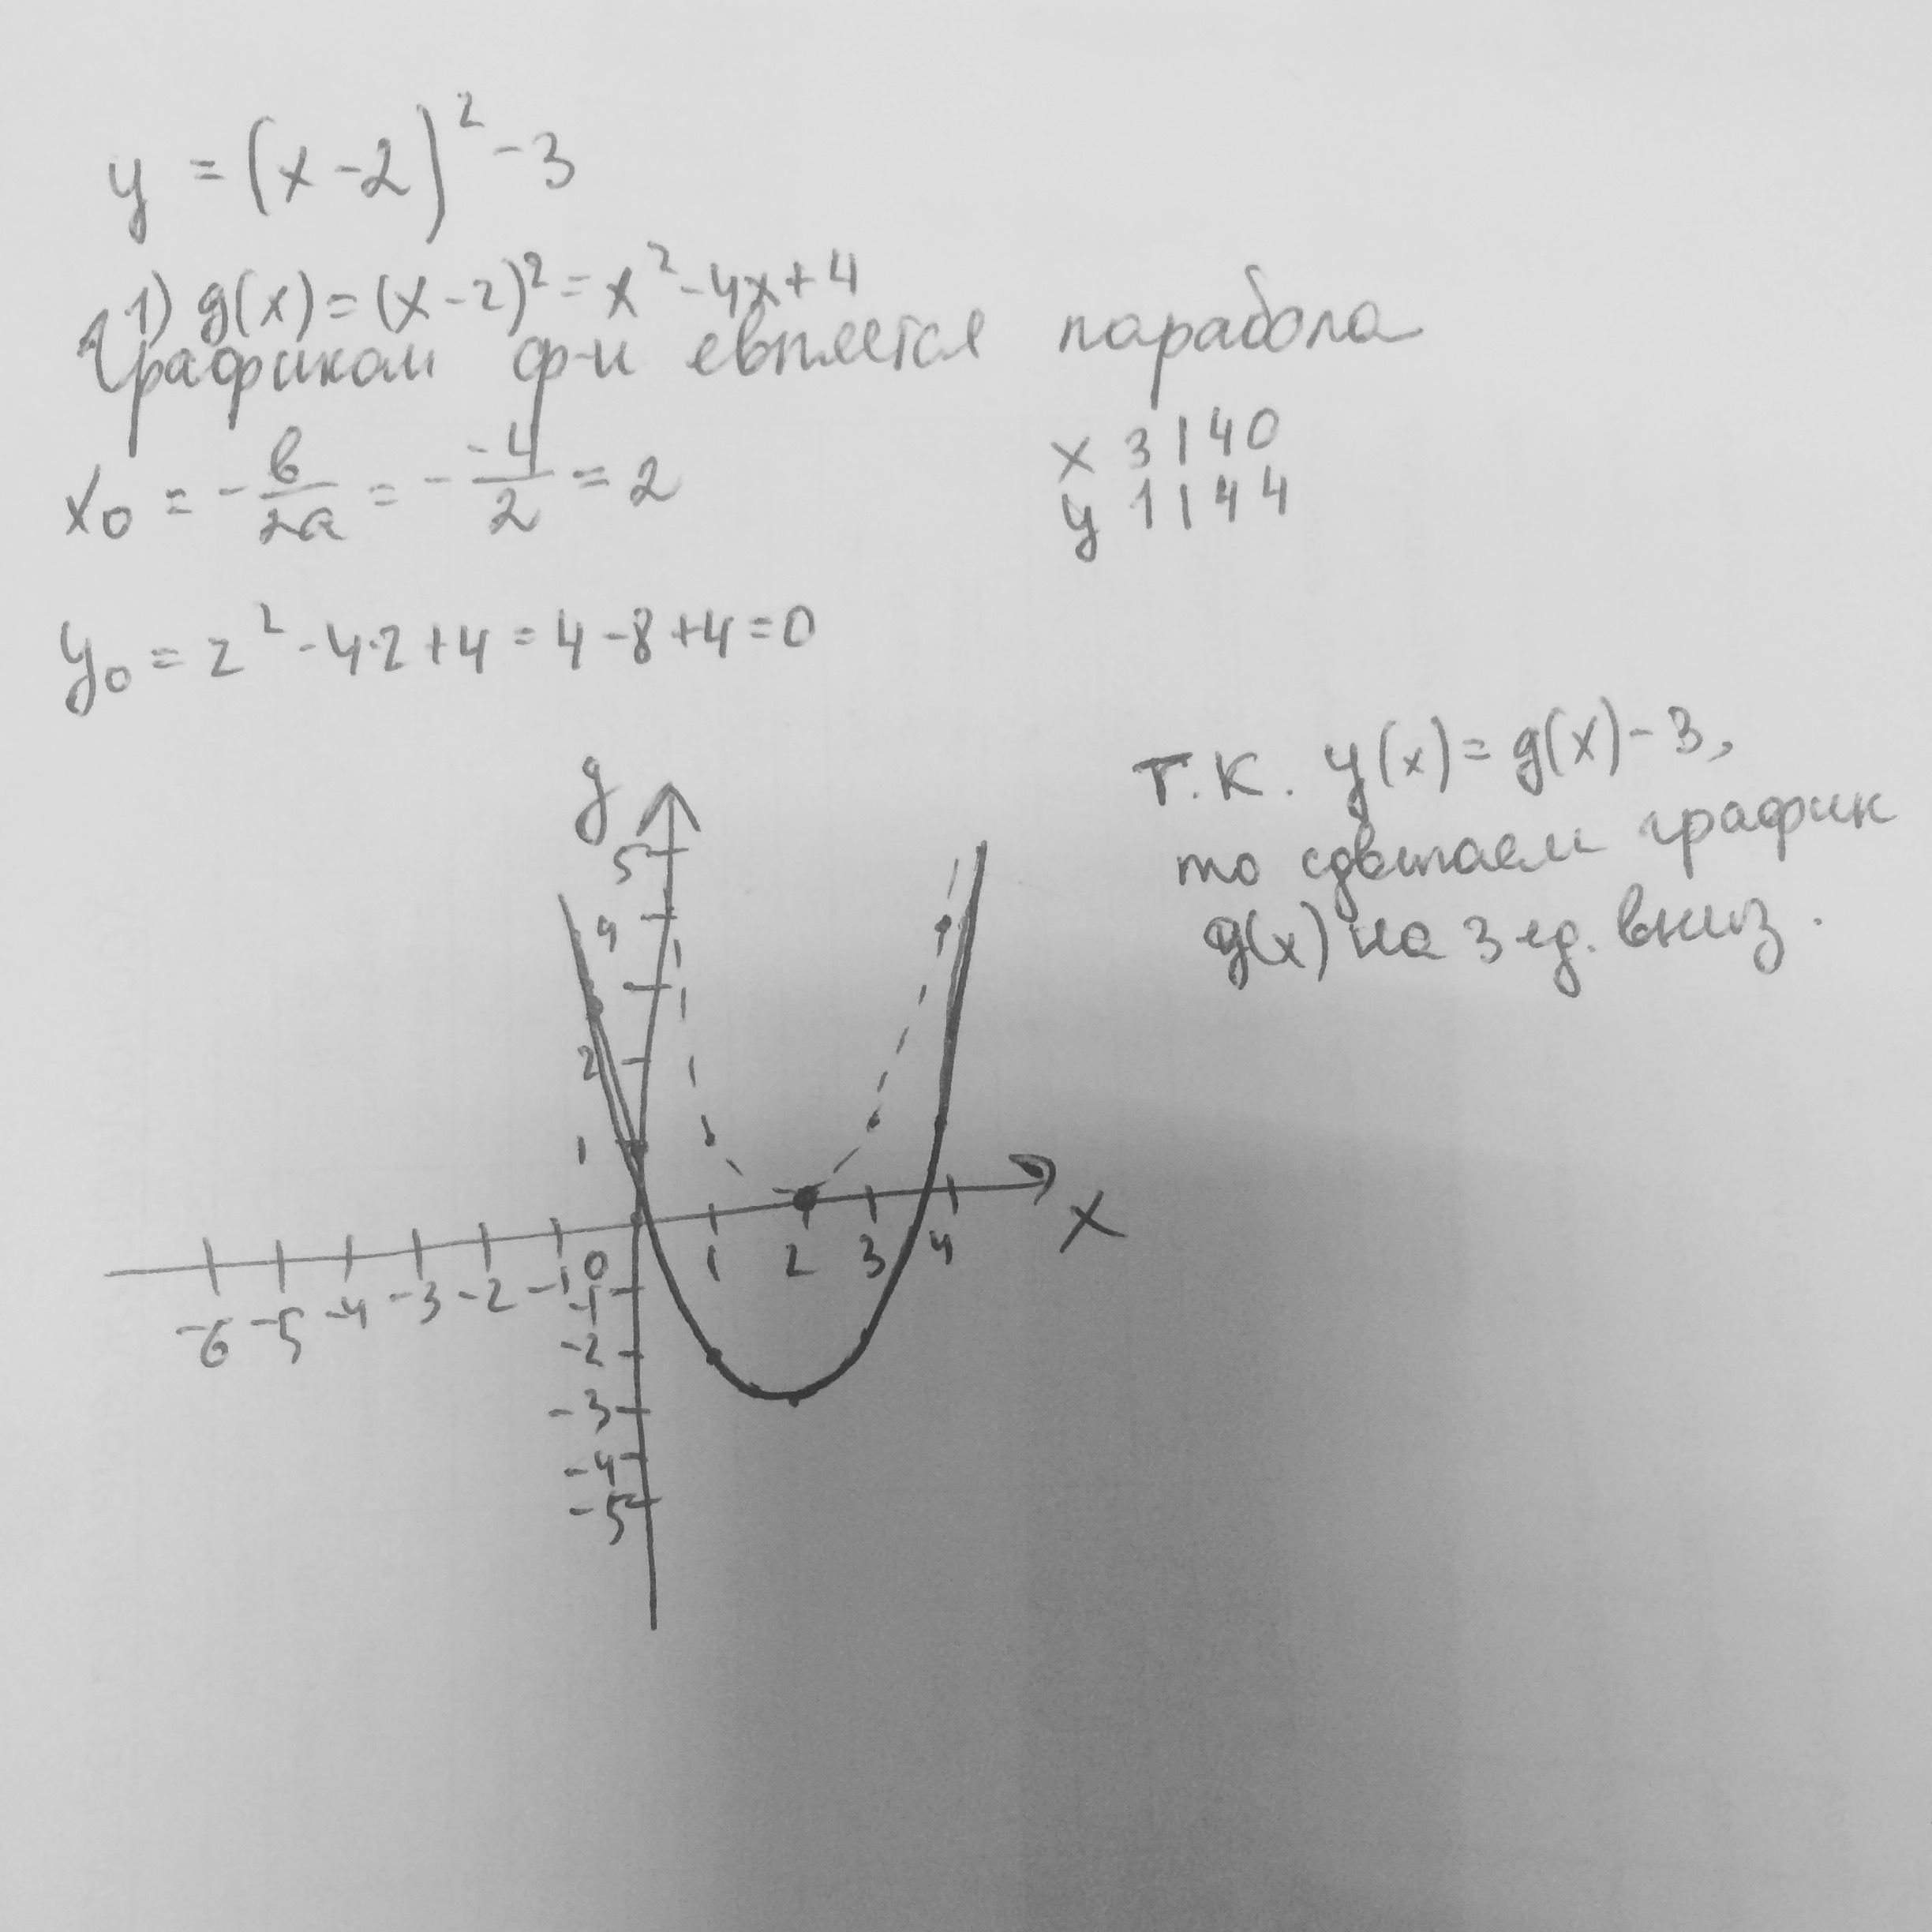 y = (x-2)² - 3
1) g(x) = (x-2)² = x² - 4x + 4
Графиком ф-и евляется парабола
x 3 1 4 0
y 1 1 4 4
x₀ = -в/2a = - -4/2 = 2
y₀ = 2² - 4·2 + 4 = 4 - 8 + 4 = 0
т.к. y(x) = g(x) - 3,
то сдвигаем график
g(x) на 3 ед. вниз.
y
5
4
2
1
0
-6 -5 -4 -3 -2 -1
1 2 3 4
x
-1
-2
-3
-4
-5